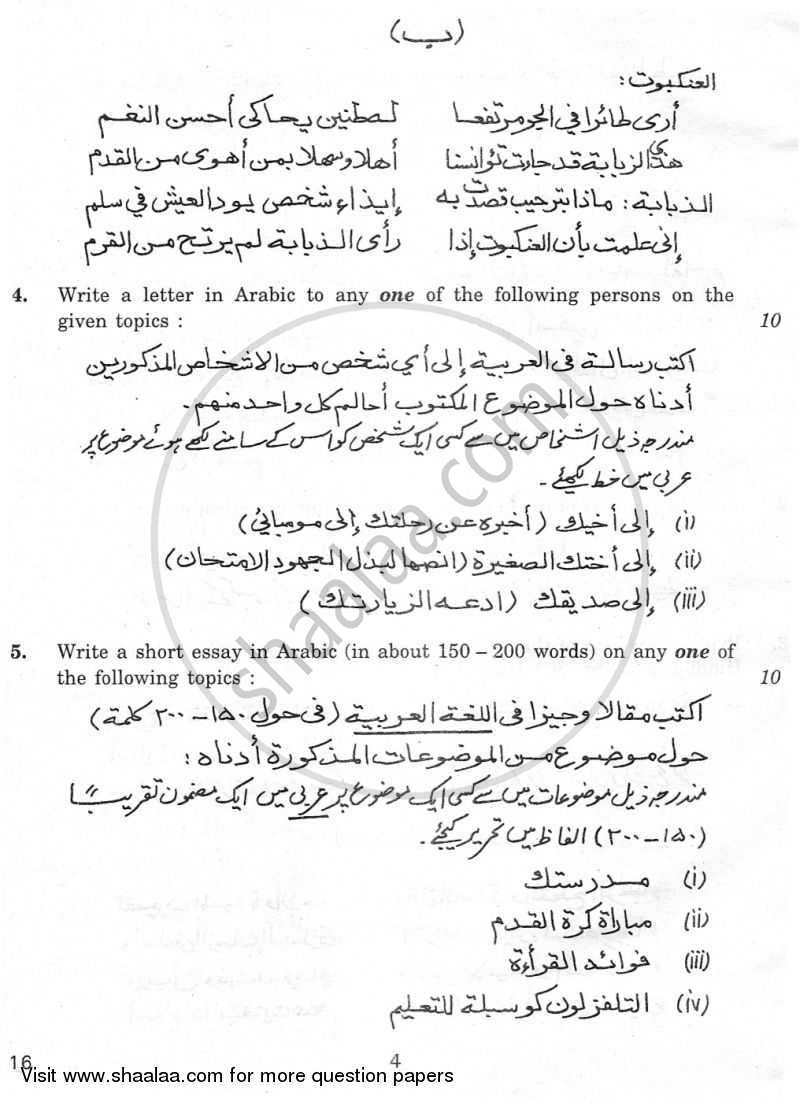 (ب)
العنكبوت:
أرى طائرا في الجو مرتفعا لـطنين يحاكى أحسن النغم
هذى الزبابة قد جارت تؤانسنا أهلا وسهلا بمن أهوى من القدم
الذبابة: ماذا بترحيب قصدت به إيذاء شخص يود العيش في سلم
إنى علمت بأن العنكبوت إذا رأى الذبابة لم يرتح من القرم
4. Write a letter in Arabic to any one of the following persons on the
given topics : 10
اكتب رسالة فى العربية إلى أي شخص من الاشخاص المذكورين
أدناه حول الموضوع المكتوب أمالم كل واحد منهم۔
مندرجہ ذیل اشخاص میں سے کسی ایک شخص کو اس کے سامنے لکھے ہوئے موضوع پر
عربی میں خط لکھئے۔
(i) إلى أخيك (أخبره عن رحلتك إلى مومبائي)
(ii) إلى أختك الصغيرة (انصها لبذل الجهود الامتحان)
(iii) إلى صديقك (ادعه الزيارتك)
5. Write a short essay in Arabic (in about 150 – 200 words) on any one of
the following topics : 10
اكتب مقالا وجيزا فى اللغة العربية (فى حول ۱۵۰–۲۰۰ كلمة)
حول موضوع من الموضوعات المذكورة أدناه:
مندرجہ ذیل موضوعات میں سے کسی ایک موضوع پر عربی میں ایک مضمون تقریباً
(۱۵۰–۲۰۰) الفاظ میں تحریر کیجئے۔
(i) مدرستك
(ii) مباراة كرة القدم
(iii) فوائد القرأءة
(iv) التلفزلون كوسبلة للتعليم
16 4
Visit www.shaalaa.com for more question papers
shaalaa.com